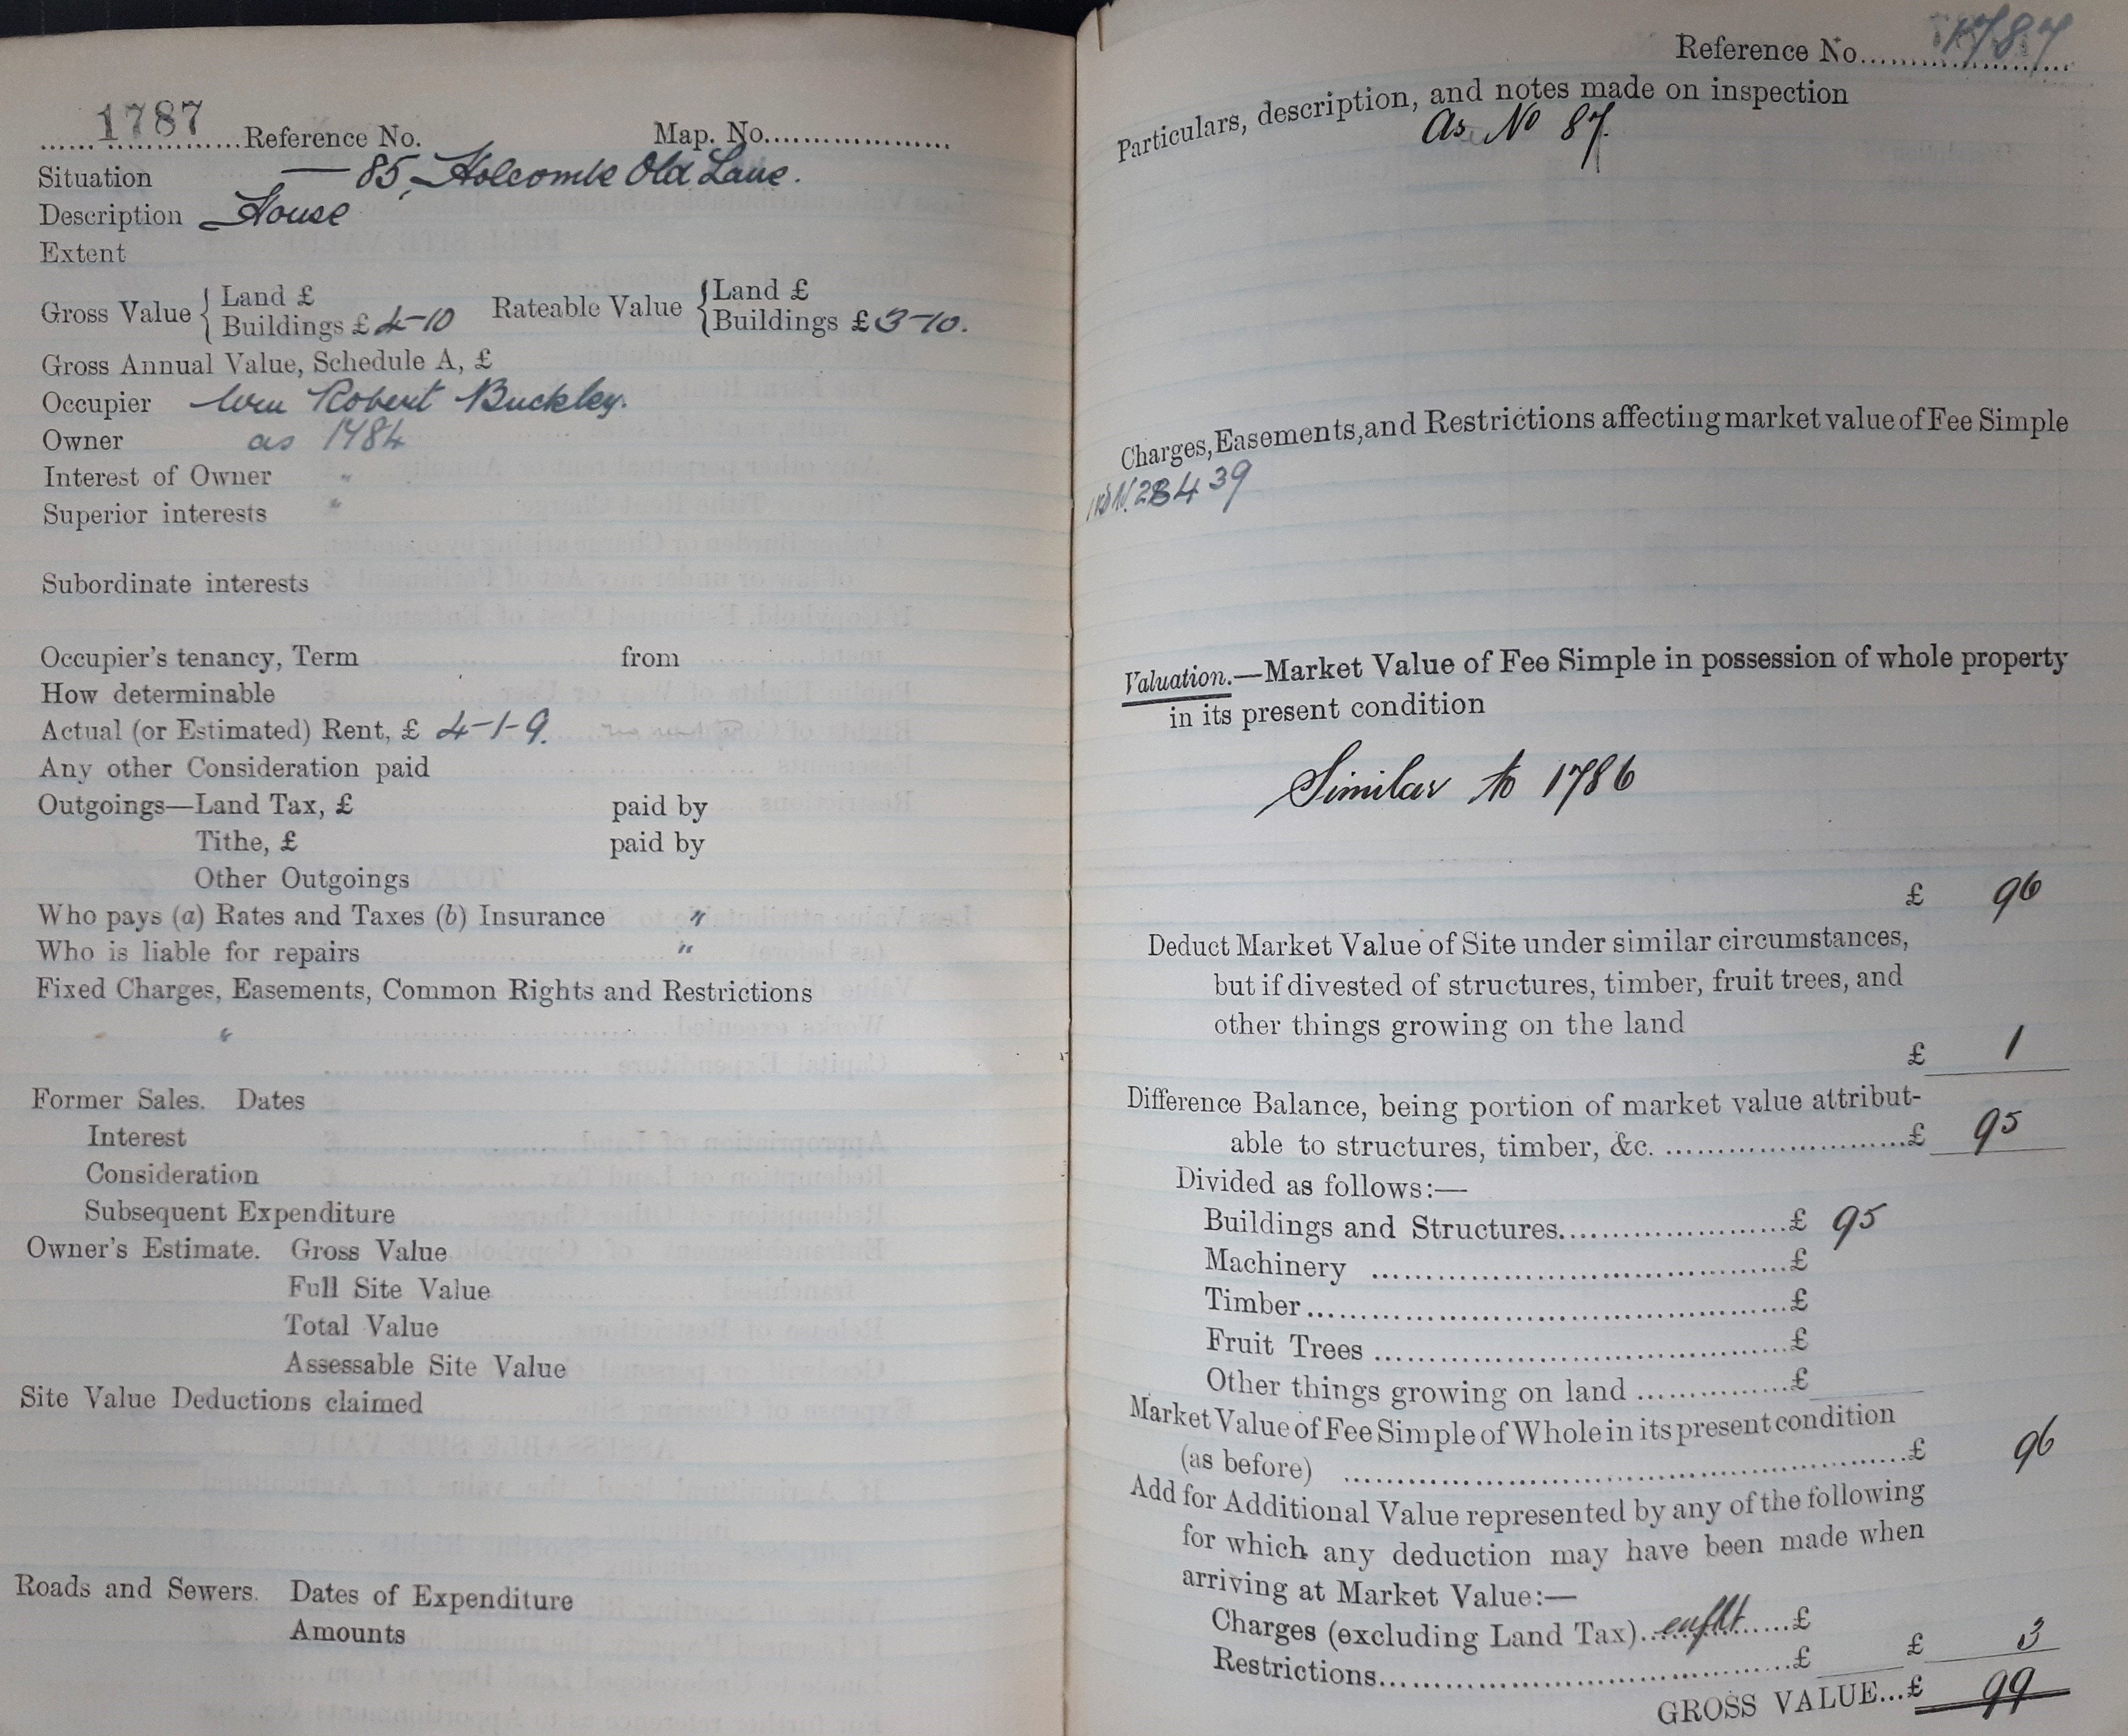 1787 Reference No. Map. No.
Situation — 85, Holcombe Old Lane.
Description House
Extent
Gross Value { Land £
Buildings £ 4-10 Rateable Value { Land £
Buildings £ 3-10.
Gross Annual Value, Schedule A, £
Occupier Wm Robert Buckley.
Owner as 1784
Interest of Owner "
Superior interests "
Subordinate interests
Occupier's tenancy, Term from
How determinable
Actual (or Estimated) Rent, £ 4-1-9.
Any other Consideration paid
Outgoings—Land Tax, £ paid by
Tithe, £ paid by
Other Outgoings
Who pays (a) Rates and Taxes (b) Insurance "
Who is liable for repairs "
Fixed Charges, Easements, Common Rights and Restrictions
"
Former Sales. Dates
Interest
Consideration
Subsequent Expenditure
Owner's Estimate. Gross Value
Full Site Value
Total Value
Assessable Site Value
Site Value Deductions claimed
Roads and Sewers. Dates of Expenditure
Amounts
Reference No. 1787
Particulars, description, and notes made on inspection
As No 87.
Charges, Easements, and Restrictions affecting market value of Fee Simple
28439
Valuation.—Market Value of Fee Simple in possession of whole property
in its present condition
Similar to 1786
£ 96
Deduct Market Value of Site under similar circumstances,
but if divested of structures, timber, fruit trees, and
other things growing on the land
£ 1
Difference Balance, being portion of market value attribut-
able to structures, timber, &c. £ 95
Divided as follows:—
Buildings and Structures £ 95
Machinery £
Timber £
Fruit Trees £
Other things growing on land £
Market Value of Fee Simple of Whole in its present condition
(as before) £ 96
Add for Additional Value represented by any of the following
for which any deduction may have been made when
arriving at Market Value:—
Charges (excluding Land Tax) £
Restrictions £ £ 3
GROSS VALUE...£ 99